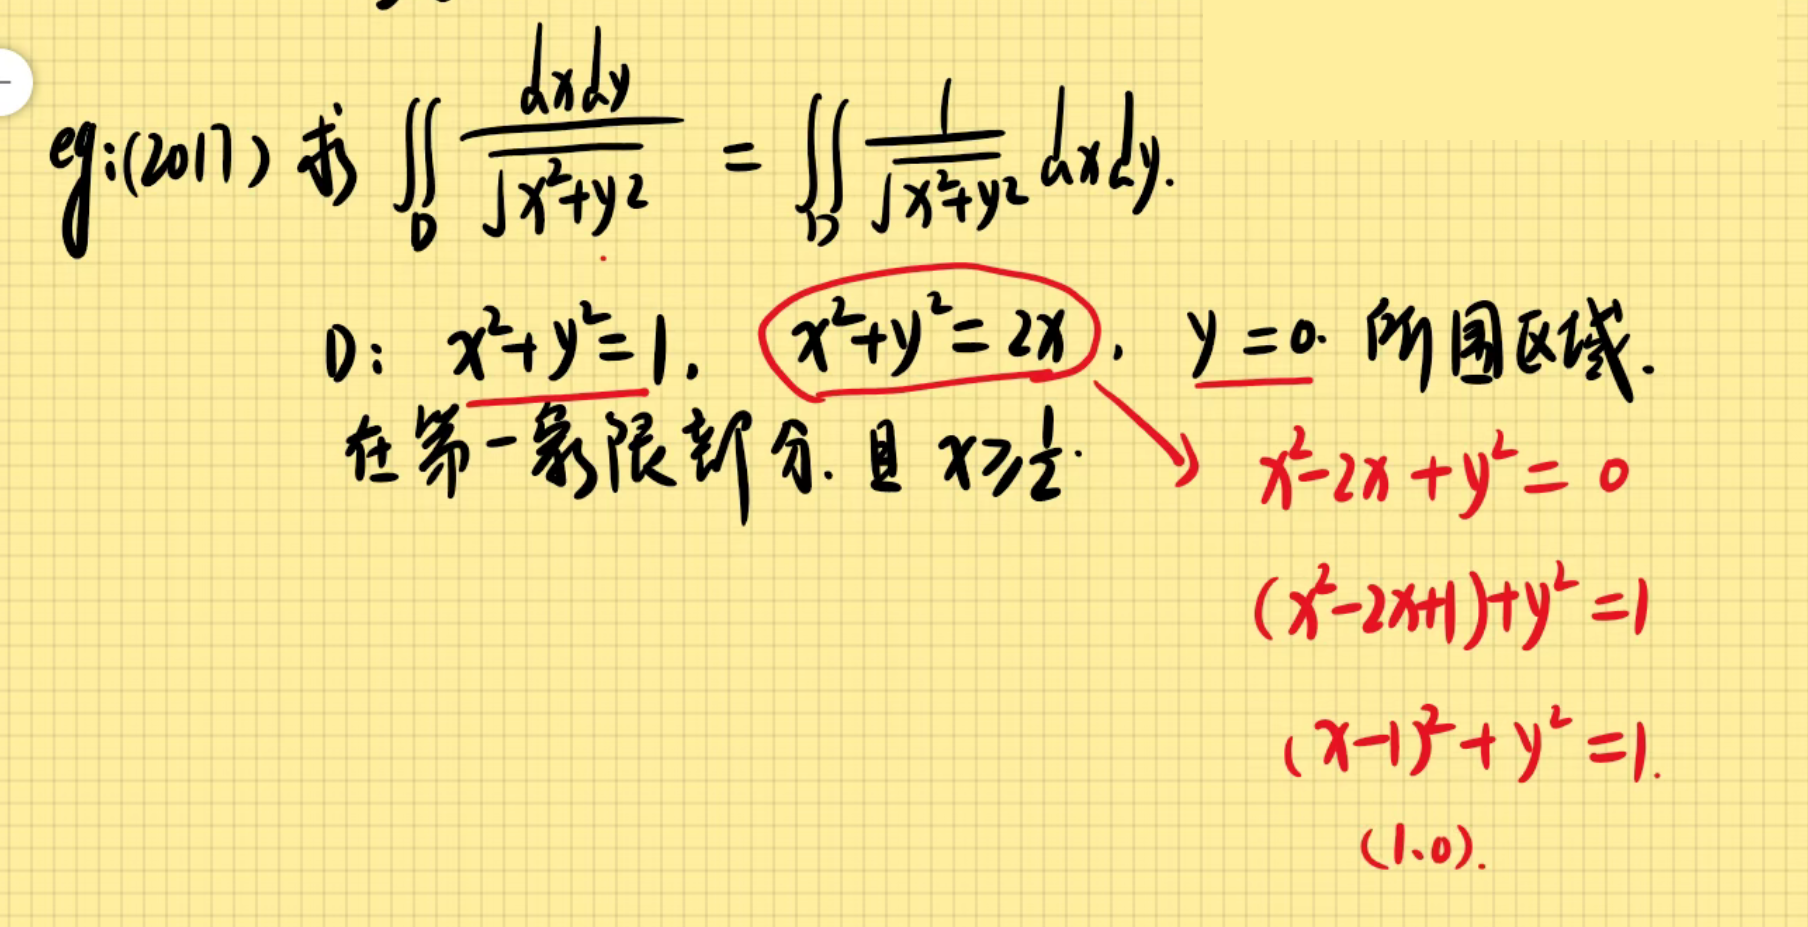 eg:(2017) 求 ∬_D dxdy/√(x²+y²) = ∬_D 1/√(x²+y²) dxdy.
D: x²+y²=1, x²+y²=2x, y=0. 所围区域.
在第一象限部分.且 x≥1/2.
x²-2x+y²=0
(x²-2x+1)+y²=1
(x-1)²+y²=1.
(1.0).